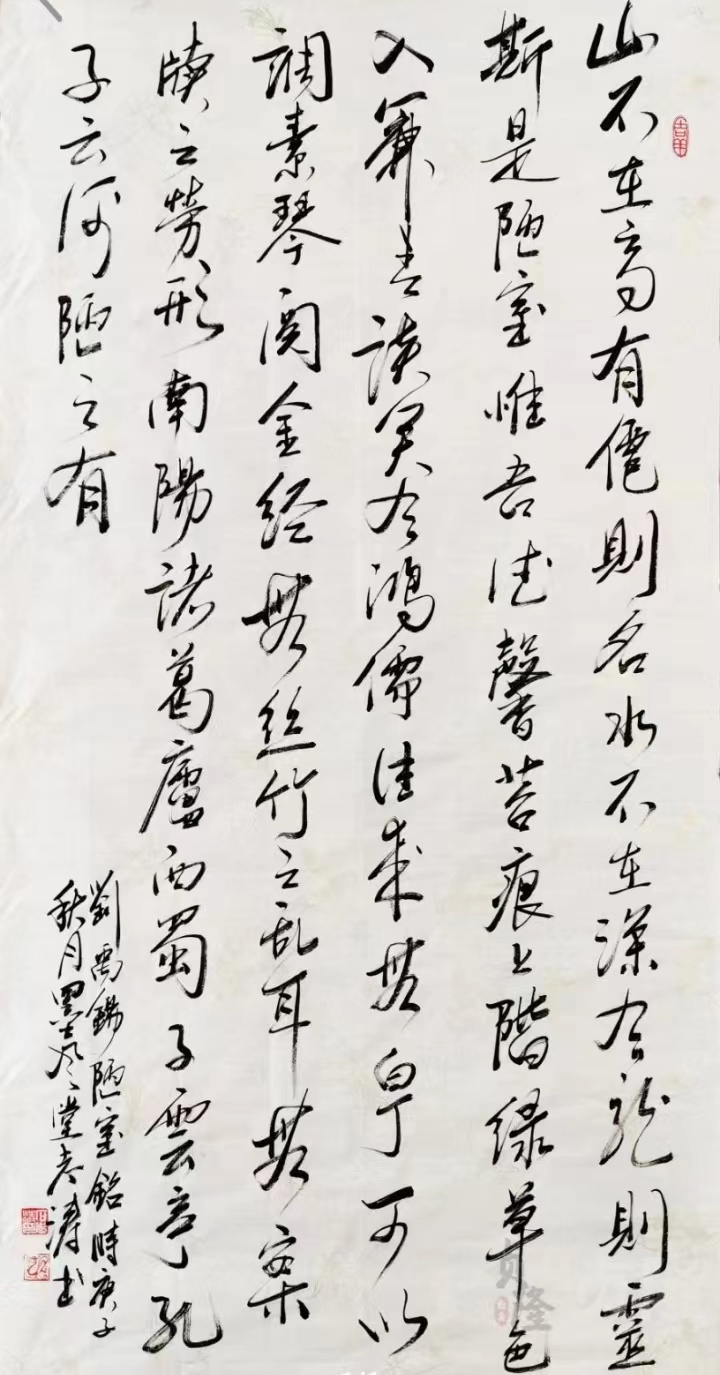 山不在高有僊則名水不在深有龍則靈
斯是陋室惟吾德馨苔痕上階緑草色
入簾青談笑有鴻儒往來無白丁可以
調素琴閲金經無絲竹之乱耳無案
牘之勞形南陽諸葛廬西蜀子雲亭孔
子云何陋之有
劉禹錫陋室銘時庚子
秋月墨堂濤书